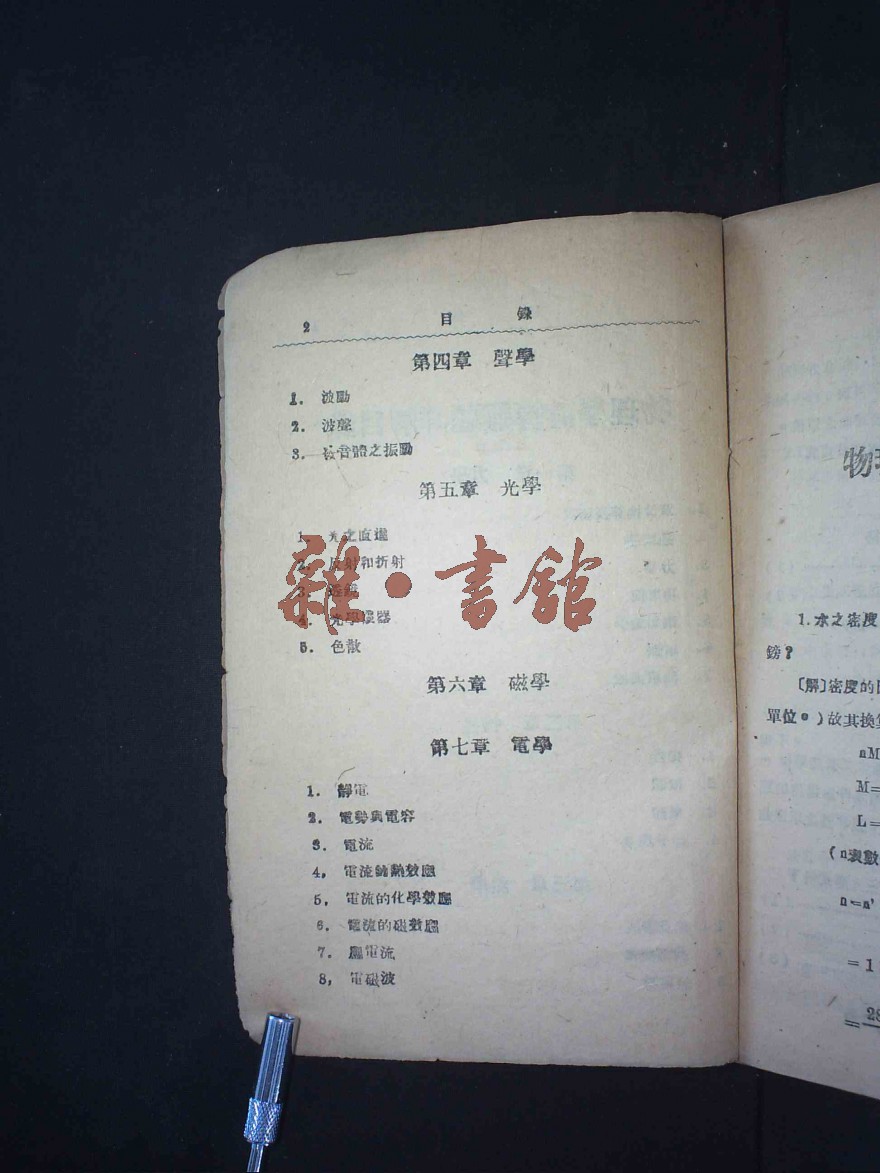 2 目 錄
第四章 聲學
1. 波動
2. 波聲
3. 發音體之振動
第五章 光學
1. 光之直進
2. 反射和折射
3. 透鏡
4. 光學儀器
5. 色散
第六章 磁學
第七章 電學
1. 靜電
2. 電勢與電容
3. 電流
4, 電流的熱效應
5, 電流的化學效應
6. 電流的磁效應
7. 應電流
8, 電磁波
雜·書館
物理
1.水之密度
鎊?
〔解〕密度的
單位。)故其換
nM
M=
L=
(n表數
n=n'
=1
28
=